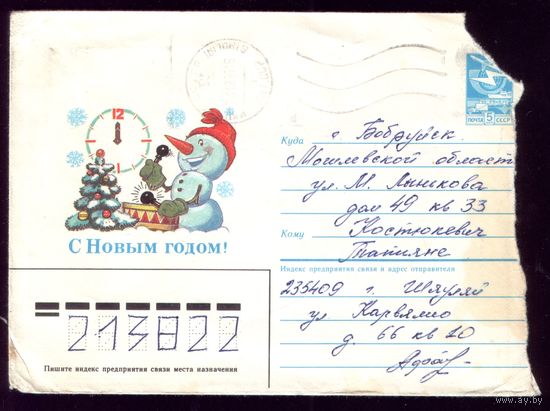 12
1
ПОЧТА 5 СССР
С Новым годом!
Куда г. Бобруйск
Могилевской област
ул. М. Лынькова
дом 49 кв 33
Кому Костюкевич
Татьяне
Индекс предприятия связи и адрес отправителя
235409 г. Шяуляй
ул
д. 66 кв 20
213822
Пишите индекс предприятия связи места назначения
www.ay.by